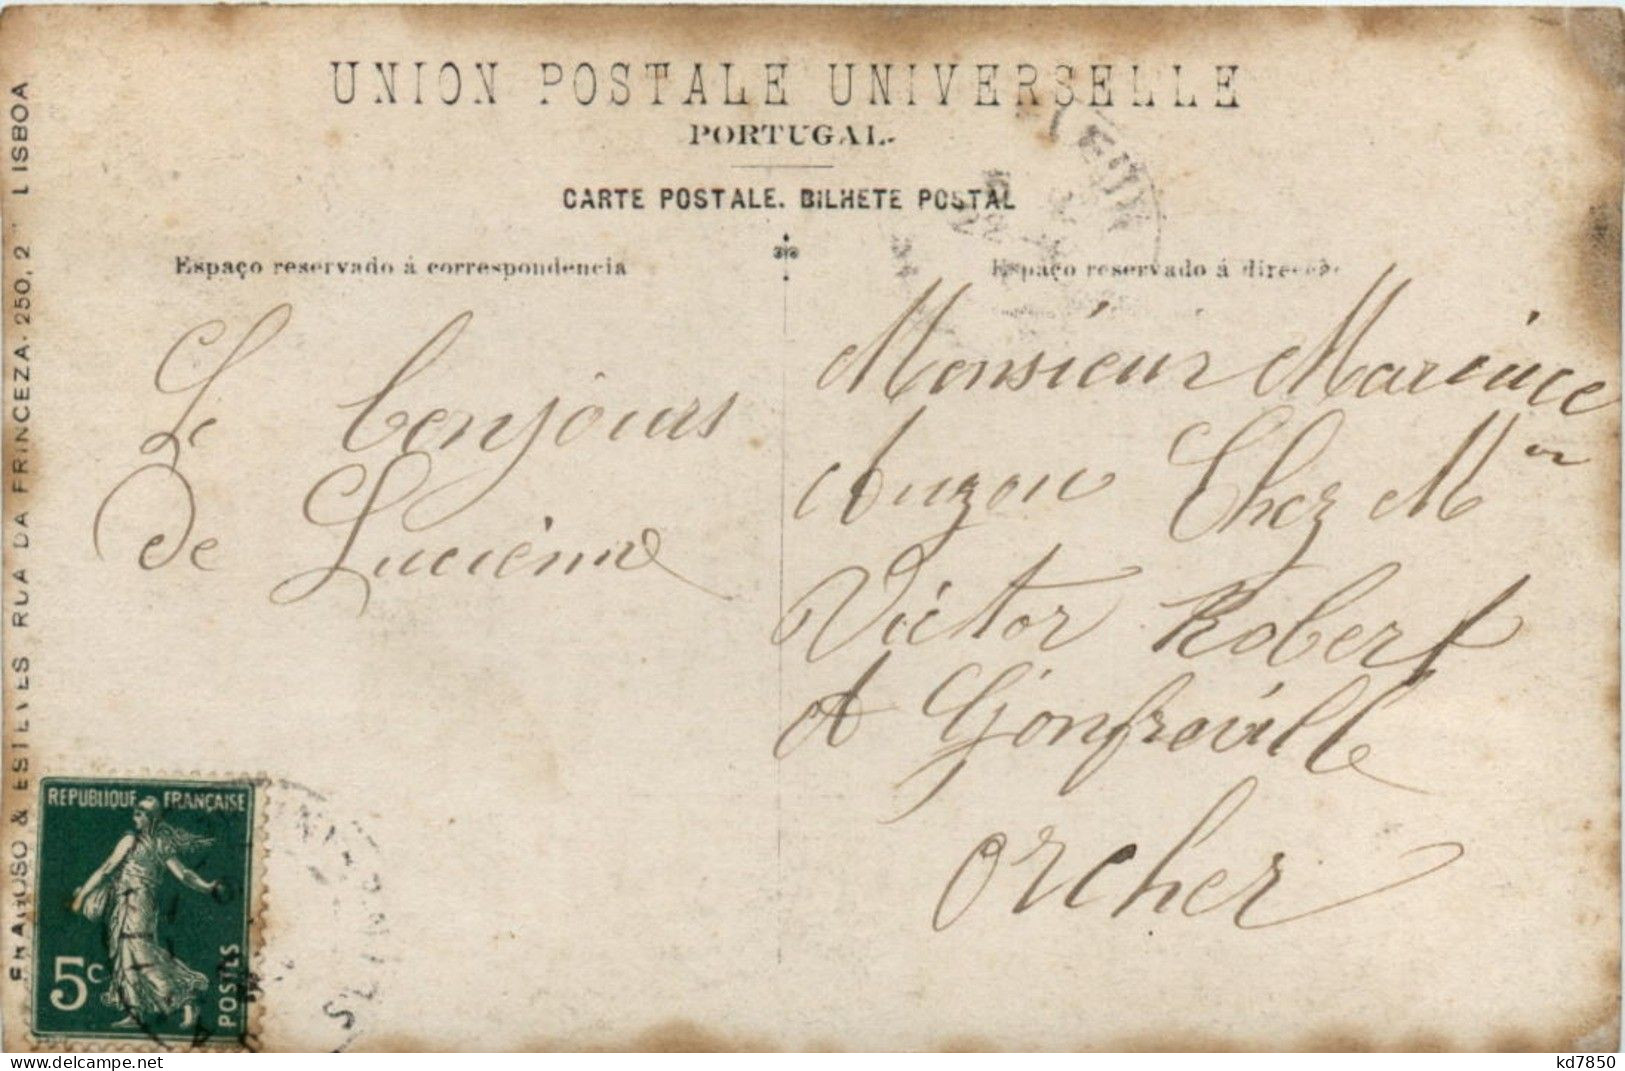 UNION POSTALE UNIVERSELLE
PORTUGAL
CARTE POSTALE. BILHETE POSTAL
Espaço reservado á correspondencia
Espaço reservado á direcção
Le bonjours
de Lucienne
Monsieur
Auzou Chez Mr
Victor Robert
A Gonfreville
Orcher
& ESTEVES RUA DA PRINCEZA. 250, 2º LISBOA
REPUBLIQUE FRANÇAISE
5c
POSTES
www.delcampe.net
kd7850